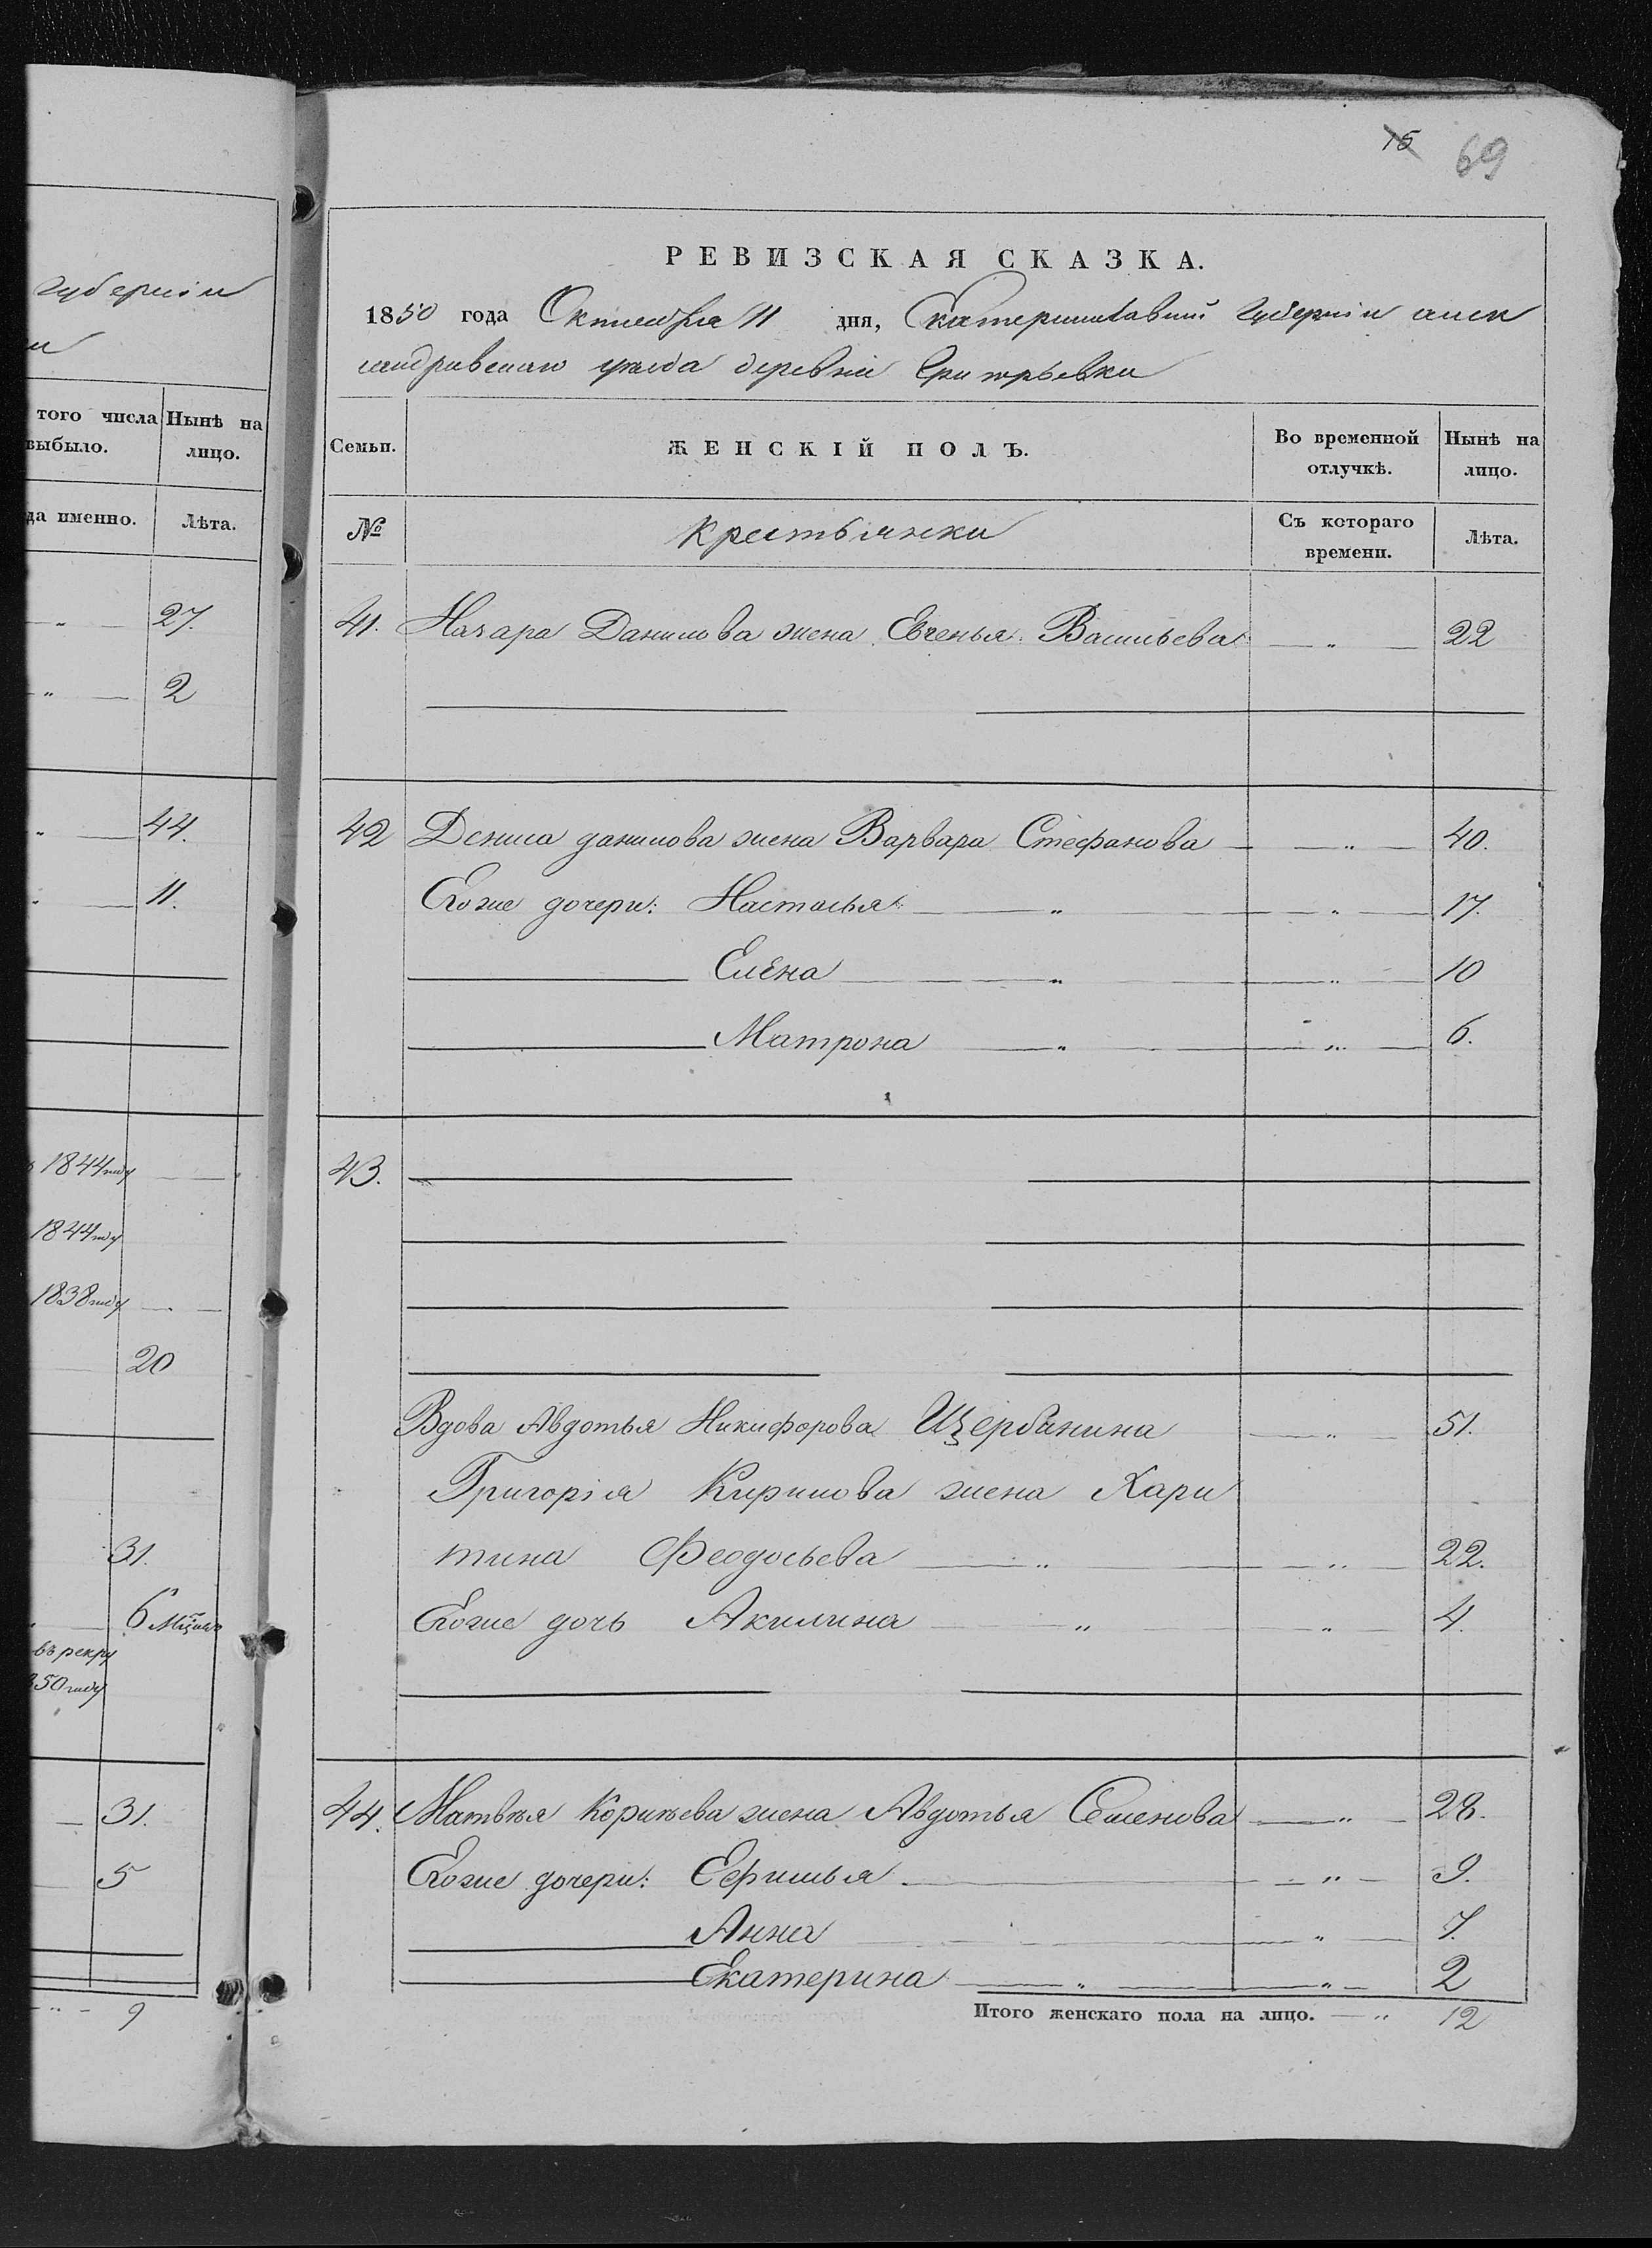 губернiи
и
того числа выбыло.
Нынѣ на лицо.
да именно.
Лѣта.
27.
2
44.
11.
1844 году
1844 году
1838 году
20
31.
6 Мѣсяц
въ рекру
850 году
31.
5
9
15 69
РЕВИЗСКАЯ СКАЗКА.
1850 года Октября 11 дня, Екатеринославской Губернiи алек
сандровскаго уѣзда деревни
Семьи.
ЖЕНСКIЙ ПОЛЪ.
Во временной отлучкѣ.
Нынѣ на лицо.
№
крестьянки
Съ котораго времени.
Лѣта.
41. Назара Данилова жена Евгенья Васильева 22
42 Дениса данилова жена Варвара Стефанова 40.
Егоже дочери: Настасья 17.
Елена 10
Матрона 6.
43.
Вдова Авдотья Никифорова Щербинина 51.
Григорiя Кирилова жена Хари
тина Феодосьева 22.
Егоже дочь Акилина 4.
44. Матвѣя Корнѣева жена Авдотья Семенова 28.
Егоже дочери: Ефимья 9.
Анна 7.
Екатерина 2
Итого женскаго пола на лицо. 12